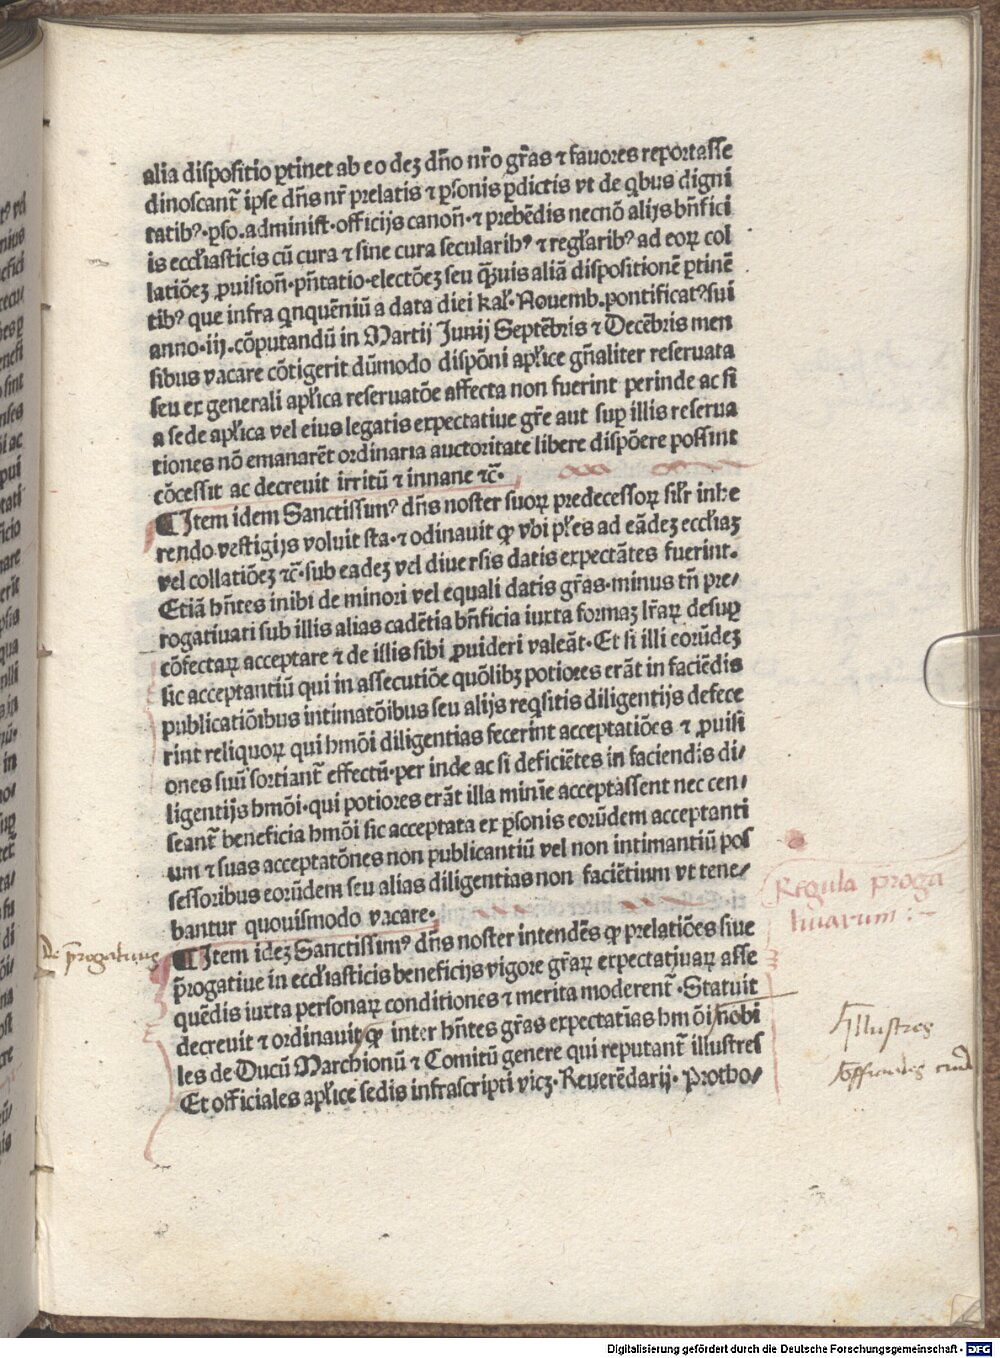 alia dispositio ꝑtinet ab eo dez dn̄o nr̄o gr̄as ⁊ fauores reportasse
dinoscant̄ ipse dn̄s nr̄ prelatis ⁊ ꝑsonis p̄dictis vt de q̄bus digni
tatibꝰ·ꝑso.administ̄·officijs canon̄·⁊ prebēdis necnō alijs bn̄fici
is eccl̄iasticis cū cura ⁊ sine cura secularibꝰ ⁊ regl̄aribꝰ ad eoꝝ col
latiōez ꝓuision̄·pn̄tatio·electōez seu q̄uis aliā dispositionē ꝑtinē
tibꝰ que infra qnquēniū a data diei kal̄·Nouemb.pontificatꝰ sui
anno·iij·cōputandū in Martij Junij Septēbris ⁊ Decēbris men
sibus vacare cōtigerit dūmodo dispōni apl̄ice gn̄aliter reseruata
seu ex generali apl̄ica reseruatōe affecta non fuerint perinde ac si
a sede apl̄ica vel eius legatis expectatiue gr̄e aut suꝑ illis reserua
tiones nō emanarēt ordinaria auctoritate libere dispōere possint
cōcessit ac decreuit irritū ⁊ innane ⁊c̄·
¶ Item idem Sanctissimꝰ dn̄s noster suoꝝ predecessoꝝ sil̄r inhe
rendo vestigijs voluit sta·⁊ odinauit ꝙ vbi pl̄es ad eādez eccl̄iaz
vel collatiōez ⁊c̄·sub eadez vel diuersis datis expectātes fuerint·
Etiā hn̄tes inibi de minori vel equali datis gr̄as·minus tn̄ pre/
rogatiuati sub illis alias cadētia bn̄ficia iuxta formaz lr̄aꝝ desuꝑ
cōfectaꝝ acceptare ⁊ de illis sibi ꝓuideri valeāt·Et si illi eorūdez
sic acceptantiū qui in assecutiōe quōlibz potiores erāt in faciēdis
publicatiōibus intimatōibus seu alijs reqsitis diligentijs defece
rint reliquoꝝ qui hmōi diligentias fecerint acceptatiōes ⁊ ꝓuisi
ones suū sortiant̄ effectū·per inde ac si deficiētes in faciendis di/
ligentijs hmōi·qui potiores erāt illa minīe acceptassent nec cen/
seant̄ beneficia hmōi sic acceptata ex ꝑsonis eorūdem acceptanti
um ⁊ suas acceptatōnes non publicantiū vel non intimantiū pos
sessoribus eorūdem seu alias diligentias non faciētium vt tene/
bantur quouismodo vacare·
Regula proga
tiuarum :~
De p̄rogatiuis
¶ Item idez Sanctissimꝰ dn̄s noster intendēs ꝙ prelatiōes siue
p̄rogatiue in eccl̄iasticis beneficijs vigore gr̄aꝝ expectatiuaꝝ asse
quēdis iuxta personaꝝ conditiones ⁊ merita moderent̄·Statuit
decreuit ⁊ ordinauit ꝙ inter hn̄tes gr̄as expectatias hmōi nobi
les de Ducū Marchionū ⁊ Comitū genere qui reputant̄ illustres
Et officiales apl̄ice sedis infrascripti vicz·Reuerēdarij·Protho/
Illustres
officiales
Digitalisierung gefördert durch die Deutsche Forschungsgemeinschaft - DFG